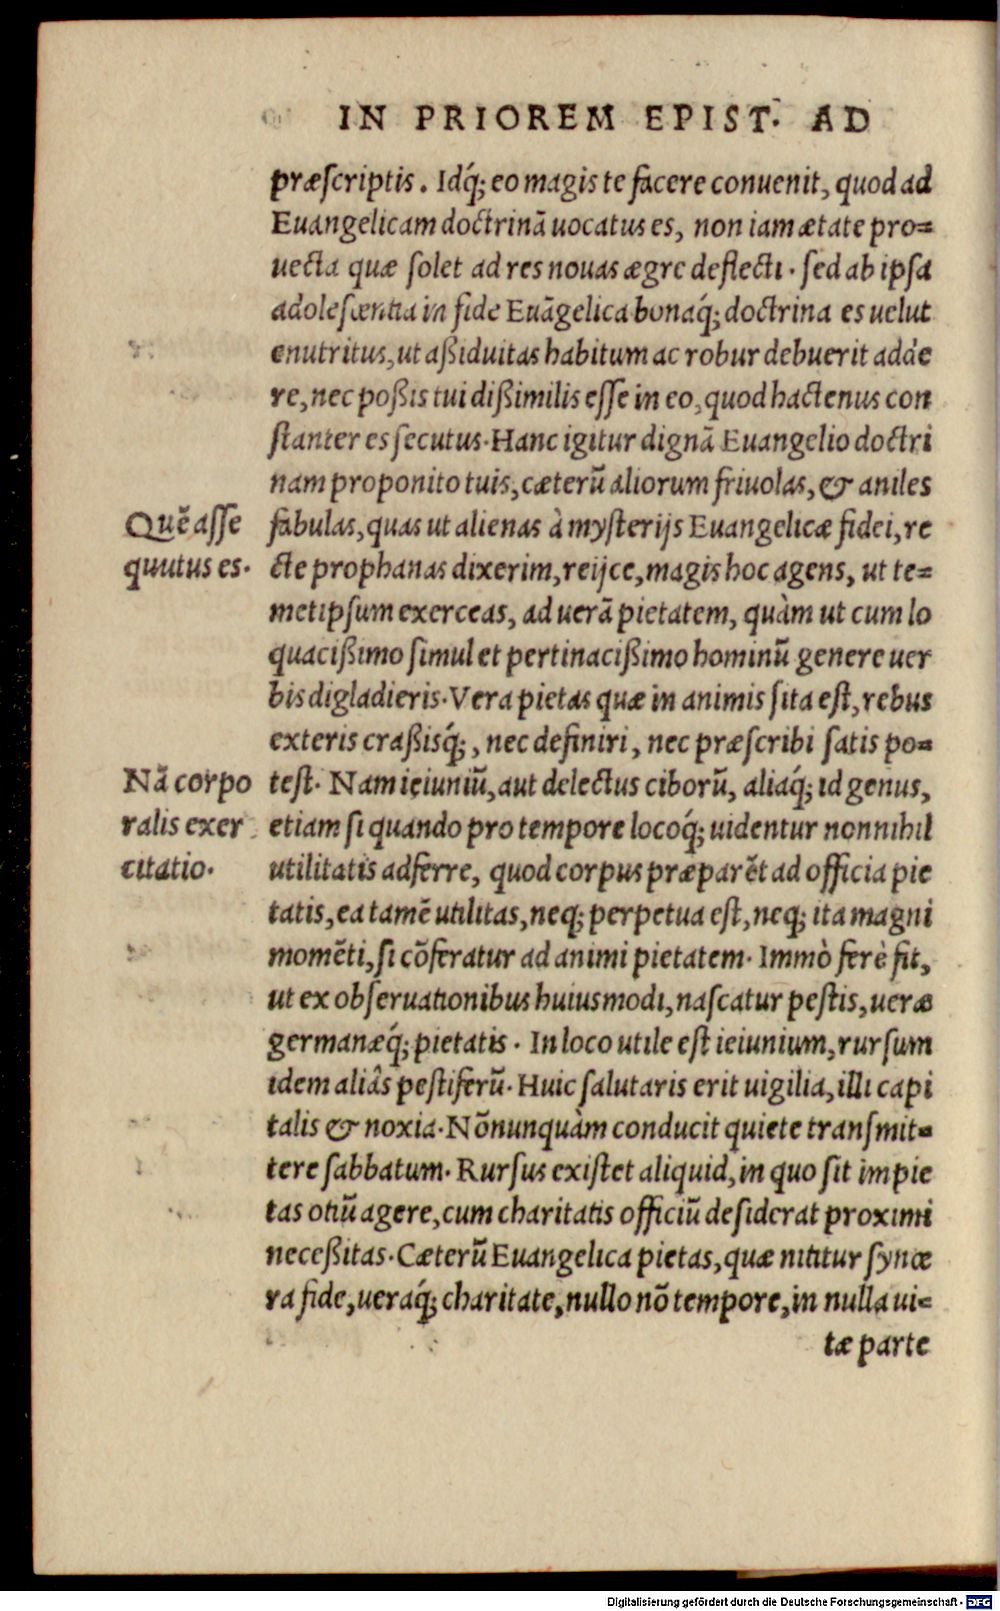 IN PRIOREM EPIST. AD
præſcriptis. Idq́; eo magis te facere conuenit, quod ad
Euangelicam doctrinā uocatus es, non iam ætate pro=
uecta quæ ſolet ad res nouas ægre deflecti. ſed ab ipſa
adoleſcentia in fide Euāgelica bonaq́; doctrina es uelut
enutritus, ut aßiduitas habitum ac robur debuerit adde
re, nec poßis tui dißimilis eſſe in eo, quod hactenus con
ſtanter es ſecutus. Hanc igitur dignā Euangelio doctri
nam proponito tuis, cæterū aliorum friuolas, & aniles
Quē aſſe
fabulas, quas ut alienas à myſterijs Euangelicæ fidei, re
quutus es.
cte prophanas dixerim, reijce, magis hoc agens, ut te=
metipſum exerceas, ad uerā pietatem, quàm ut cum lo
quacißimo ſimul et pertinacißimo hominū genere uer
bis digladieris. Vera pietas quæ in animis ſita eſt, rebus
exteris craßisq́;, nec definiri, nec præſcribi ſatis po=
Nā corpo
teſt. Nam ieiuniū, aut delectus ciborū, aliaq́; id genus,
ralis exer
etiam ſi quando pro tempore locoq́; uidentur nonnihil
citatio.
utilitatis adferre, quod corpus præparēt ad officia pie
tatis, ea tamē utilitas, neq; perpetua eſt, neq; ita magni
momēti, ſi cōferatur ad animi pietatem. Immò ferè fit,
ut ex obſeruationibus huiusmodi, naſcatur peſtis, ueræ
germanæq́; pietatis. In loco utile eſt ieiunium, rurſum
idem aliâs peſtiferū. Huic ſalutaris erit uigilia, illi capi
talis & noxia. Nōnunquàm conducit quiete tranſmit=
tere ſabbatum. Rurſus exiſtet aliquid, in quo ſit impie
tas otiū agere, cum charitatis officiū deſiderat proximi
neceßitas. Cæterū Euangelica pietas, quæ nititur ſynce
ra fide, ueraq́; charitate, nullo nō tempore, in nulla ui=
tæ parte
Digitalisierung gefördert durch die Deutsche Forschungsgemeinschaft - DFG